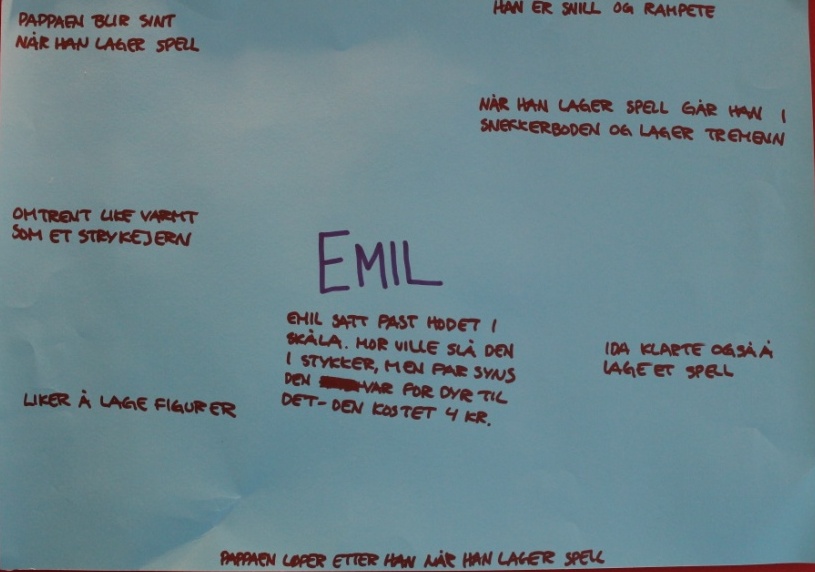 PAPPAEN BLIR SINT
NÅR HAN LAGER SPELL
HAN ER SNILL OG RAMPETE
NÅR HAN LAGER SPELL GÅR HAN I
SNEKKERBODEN OG LAGER TREMENN
OMTRENT LIKE VARMT
SOM ET STRYKEJERN
EMIL
EMIL SATT FAST HODET I
SKÅLA. MOR VILLE SLÅ DEN
I STYKKER, MEN FAR SYNS
DEN VAR FOR DYR TIL
DET- DEN KOSTET 4 KR.
IDA KLARTE OGSÅ Å
LAGE ET SPELL
LIKER Å LAGE FIGURER
PAPPAEN LØPER ETTER HAN NÅR HAN LAGER SPELL